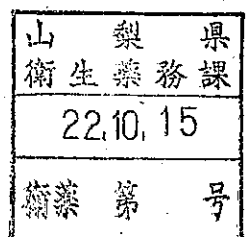 山梨県
衛生薬務課
22.10.15
衛薬第 号